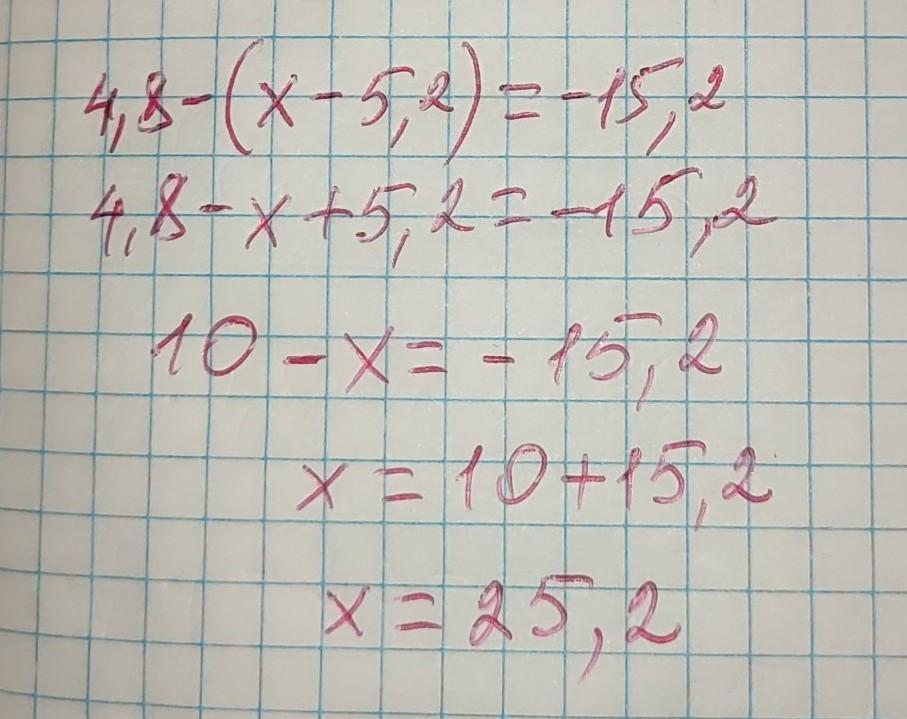 4,8-(x-5,2)=-15,2
4,8-x+5,2=-15,2
10-x=-15,2
x=10+15,2
x=25,2